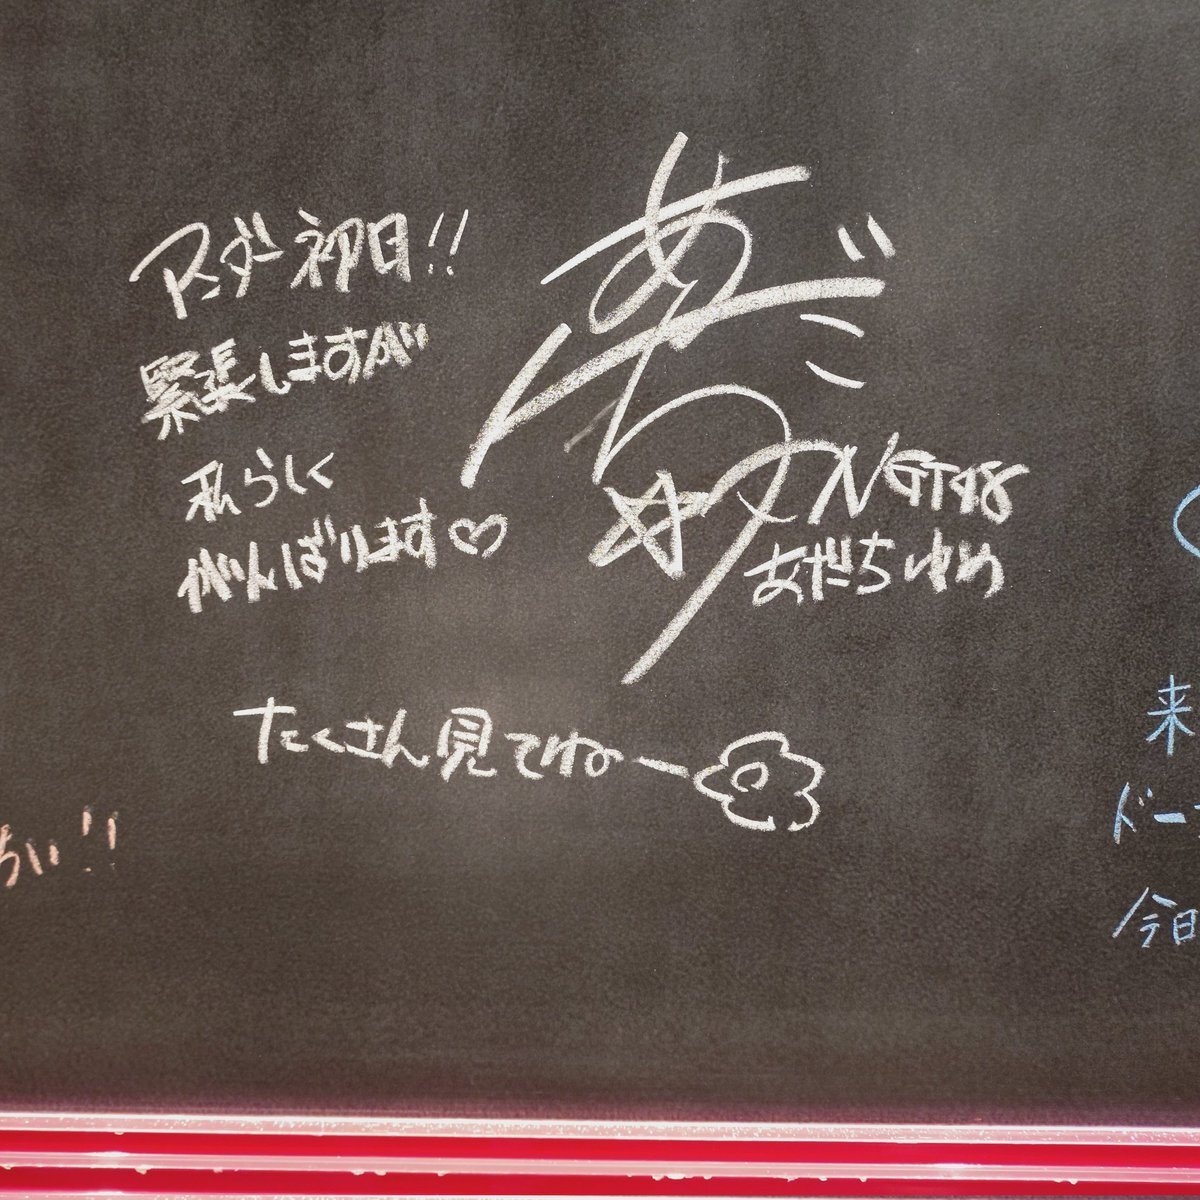 アンダー初日!!
緊張しますが
私らしく
がんばります♡
NGT48
あだちゆめ
たくさん見てねー
ちい!!
来
ドー
今日